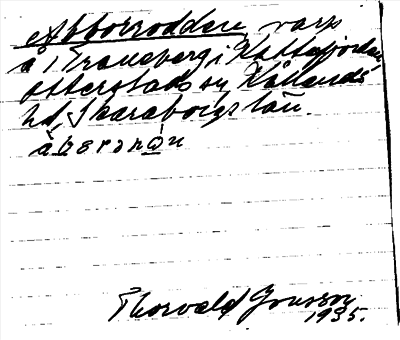 Abborrodden, varp
å Traneberg i Kattefjorden
Otterstads sn, Kållands
hd, Skaraborgs län.
Thorvald Jonsson
1935.